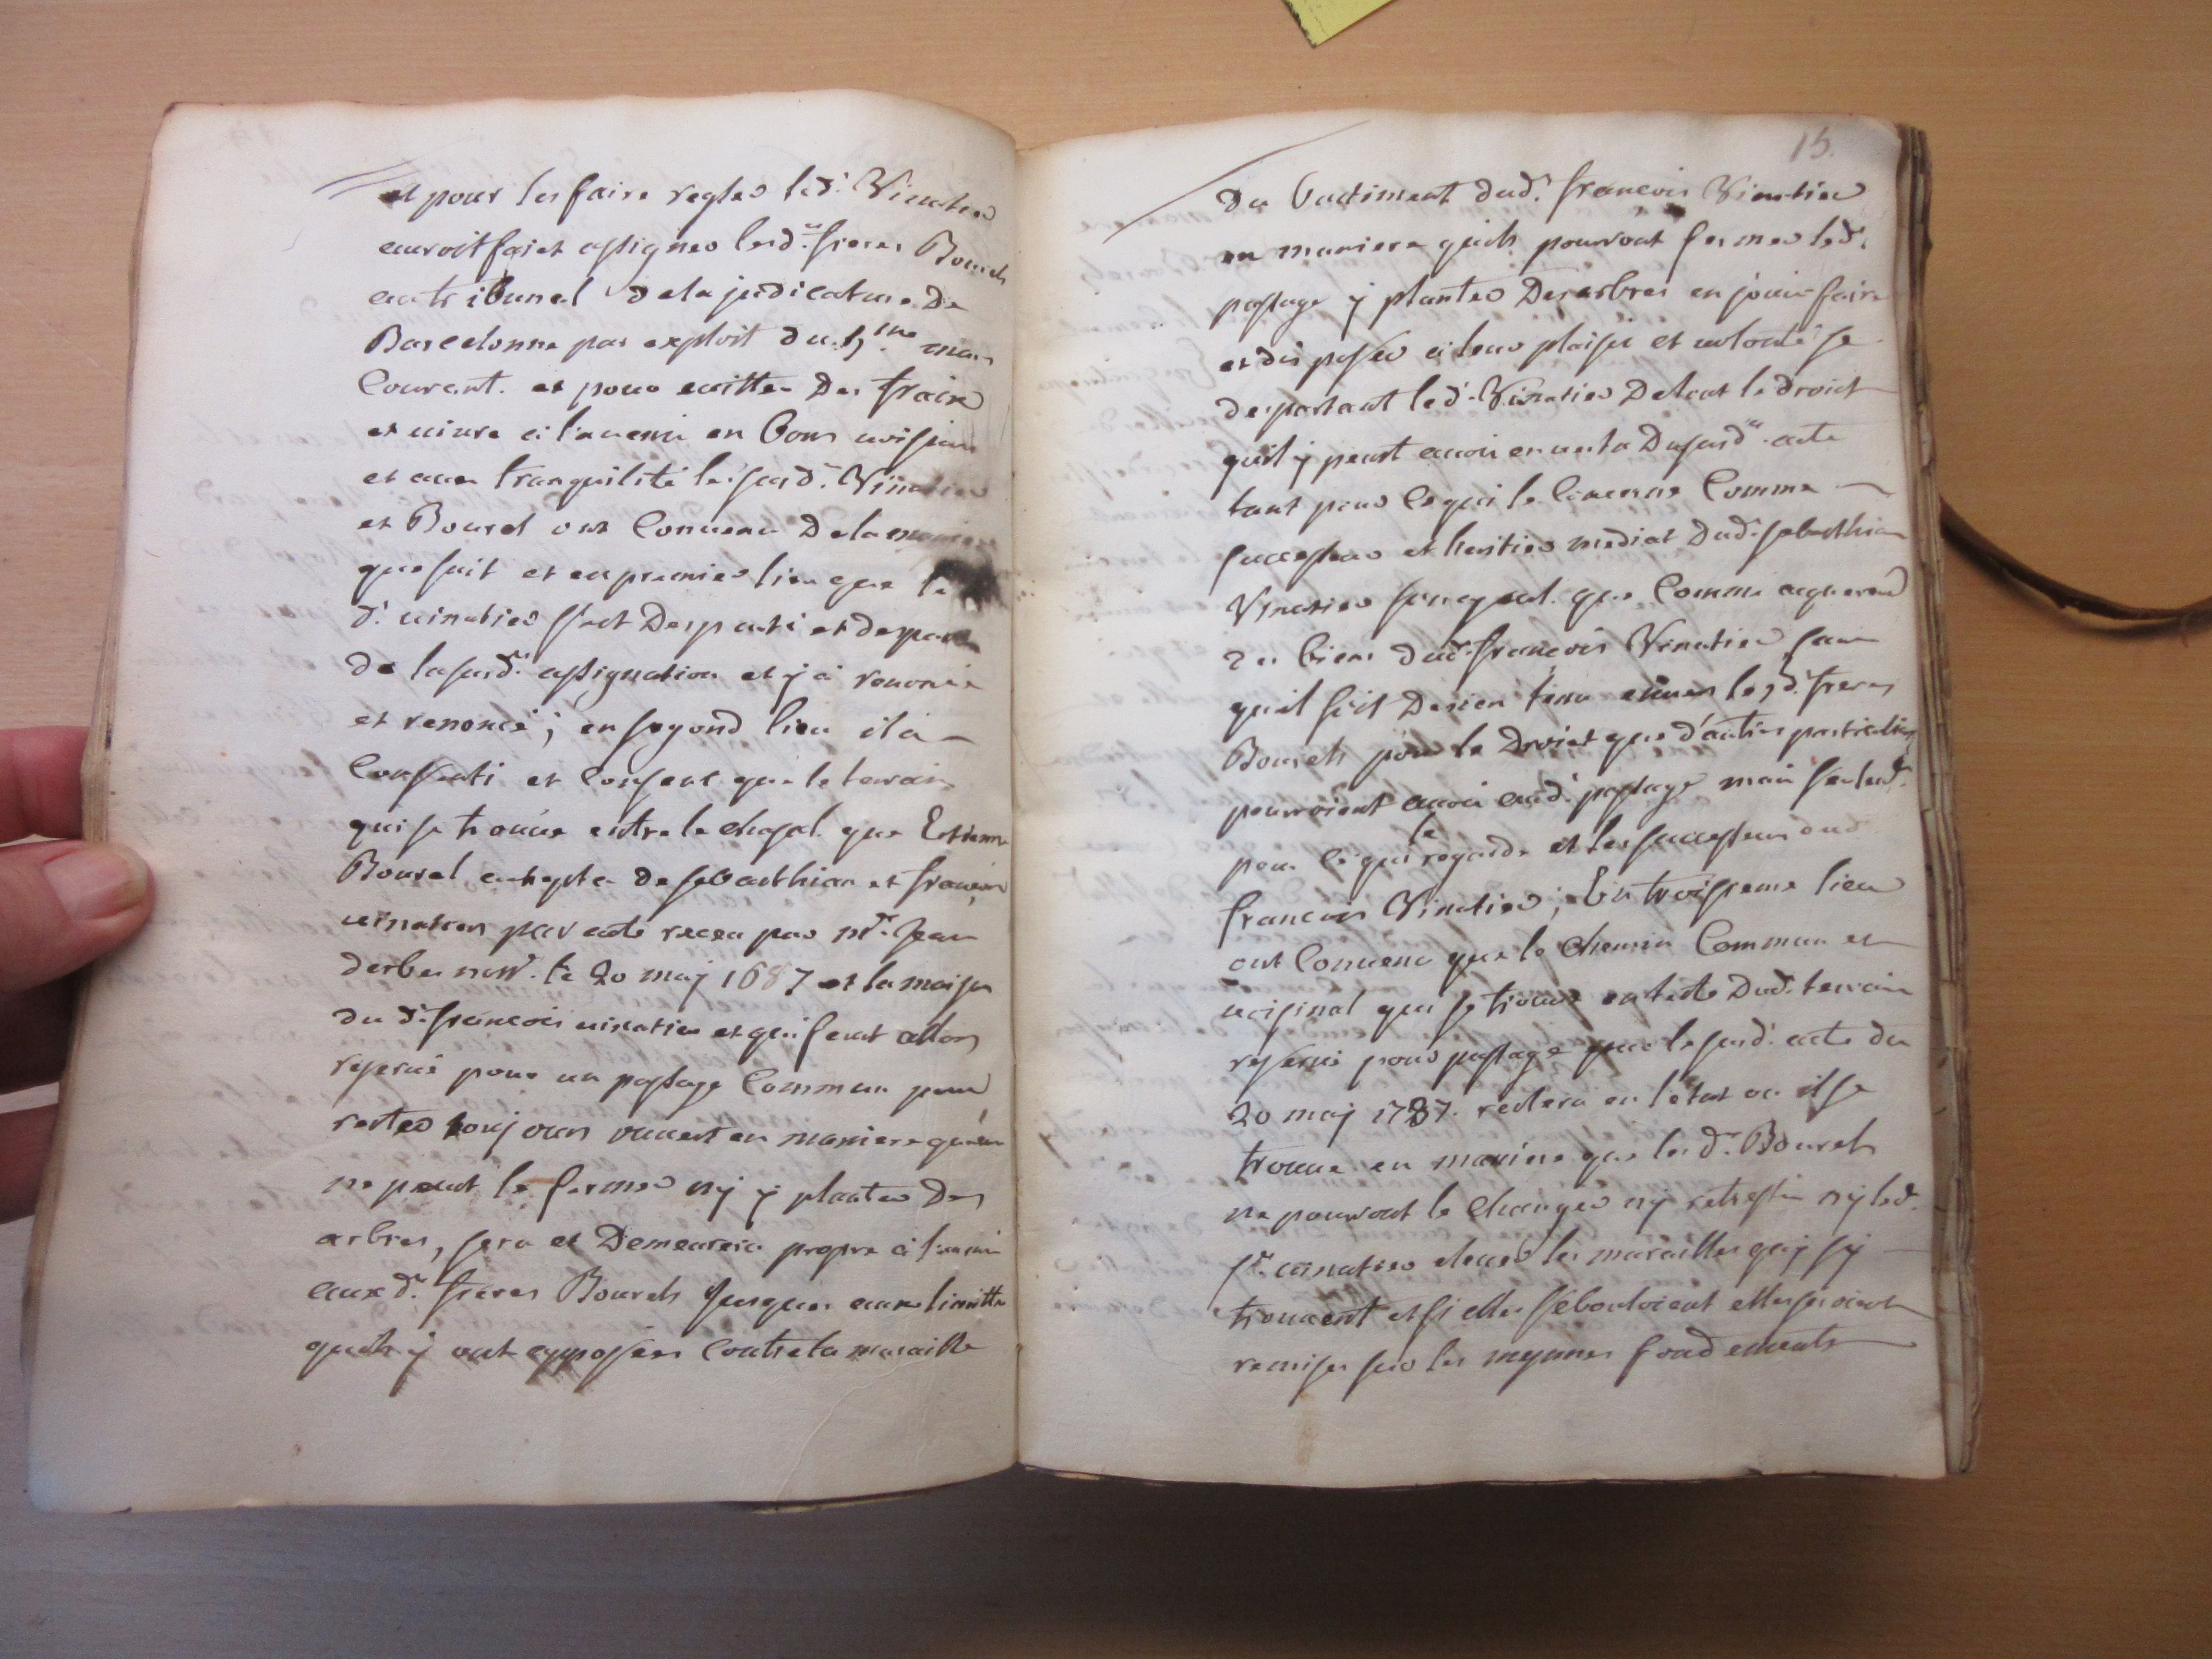 et pour les faire regler led. Vinatier
auroit fait assigner lesd. freres Bourels
au tribunal de la judicature de
Barcelonne par exploit du mois
Courant. et pour evitter des fraix
et uiure à l'auenir en bons uoisins
et auec tranquilité les susd. Vinatier
et Bourel ont Conuenu de la maniere
que suit et en premier lieu que le
d. uinatier s'est desparti et despart
de la susd. assignation et y à renoncé
et renonce; en segond lieu il à
Consenti et Consent que le terrain
qui se trouue entre le chasal que Estienne
Bourel achepta de sebasthian et francois
uinatier par acte receu par mr. Jean
derbes nore. le 20 maj 1687 et la maison
du d. francois uinatier et qui feut allors
reserué pour un passage Commun pour
rester toujours ouuert en maniere qu'on
ne peut le fermer nÿ ÿ planter des
arbres, sera et demeurera propre à l'auenir
aux d. freres Bourels jusques aux limittes
quils ÿ ont apposées Contre la muraille
15.
du battiment dud. francois Vinatier
en maniere quils pourront fermer led.
passage ÿ planter des arbres en jouir faire
et disposer à leur plaisir et uolonté se
despartant led. Vinatier de tout le droict
quil ÿ peut auoir en uertu du susd. acte
tant pour ce qui le Concerne Comme
successeur et heritier mediat dud. sebasthian
Vinatier que Comme acquereur
des biens dud. francois Vinatier sans
quil soit de rien tenu enuers lesd. freres
Bourels pour le droict que d'autres particuliers
pourroient auoir aud. passage mais seulemt.
pour ce qui le regarde et les successeurs dud.
francois Vinatier; En troisieme lieu
ont Conuenu que le chemin Commun et
uoisinal qui se trouue en teste dud. terrain
reserué pour passage par le susd. acte du
20 maj 1787. restera en l'état ou il se
trouue en maniere que les d. Bourels
ne pourront le changer nÿ retressir nÿ led.
sr. uinatier eleuer les murailles quÿ sÿ
trouuent et si elles s'ebouloient elles seroient
remises sur les meymes fondements